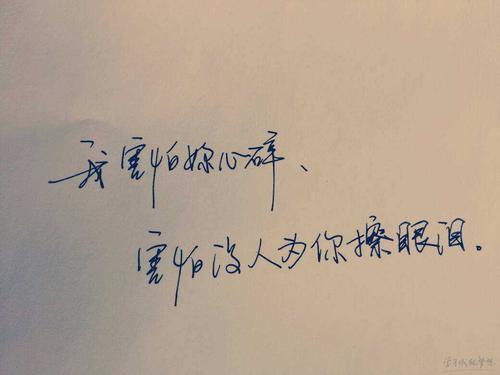 我害怕妳心碎、
害怕没人为你擦眼泪。